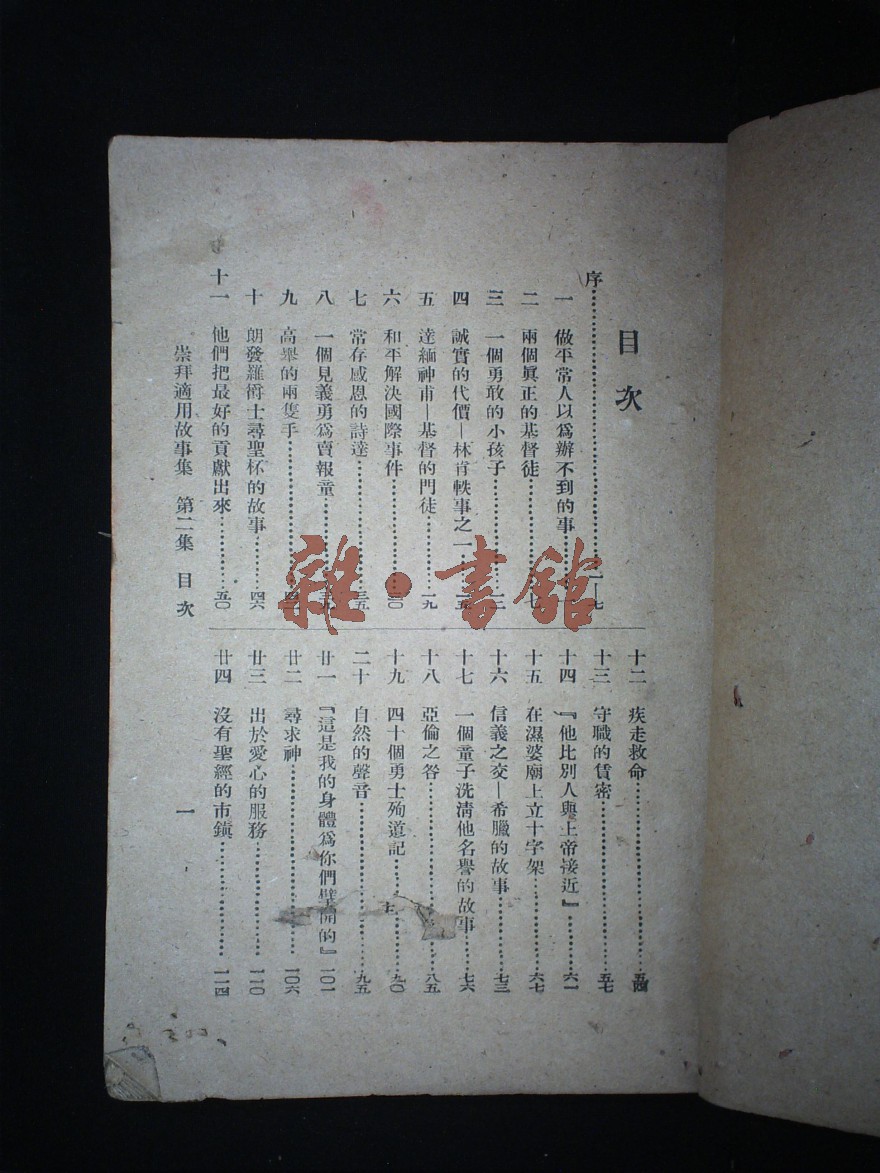 目次
序……一—七
一 做平常人以爲辦不到的事……一
二 兩個眞正的基督徒……七
三 一個勇敢的小孩子……一二
四 誠實的代價—林肯軼事之一……一五
五 達緬神甫—基督的門徒……一九
六 和平解決國際事件……三〇
七 常存感恩的詩達……三五
八 一個見義勇爲賣報童……三九
九 高舉的兩隻手……四二
十 朗發羅術士尋聖杯的故事……四六
十一 他們把最好的貢獻出來……五〇
十二 疾走救命……五四
十三 守職的賃密……五七
十四 『他比別人與上帝接近』……六一
十五 在濕婆廟上立十字架……六七
十六 信義之交—希臘的故事……七三
十七 一個童子洗清他名譽的故事……七六
十八 亞倫之咎……八五
十九 四十個勇士殉道記……九〇
二十 自然的聲音……九五
廿一 『這是我的身體爲你們擘開的』一〇一
廿二 尋求神……一〇六
廿三 出於愛心的服務……一一〇
廿四 沒有聖經的市鎭……一一四
崇拜適用故事集 第二集 目次
一
雜·書館